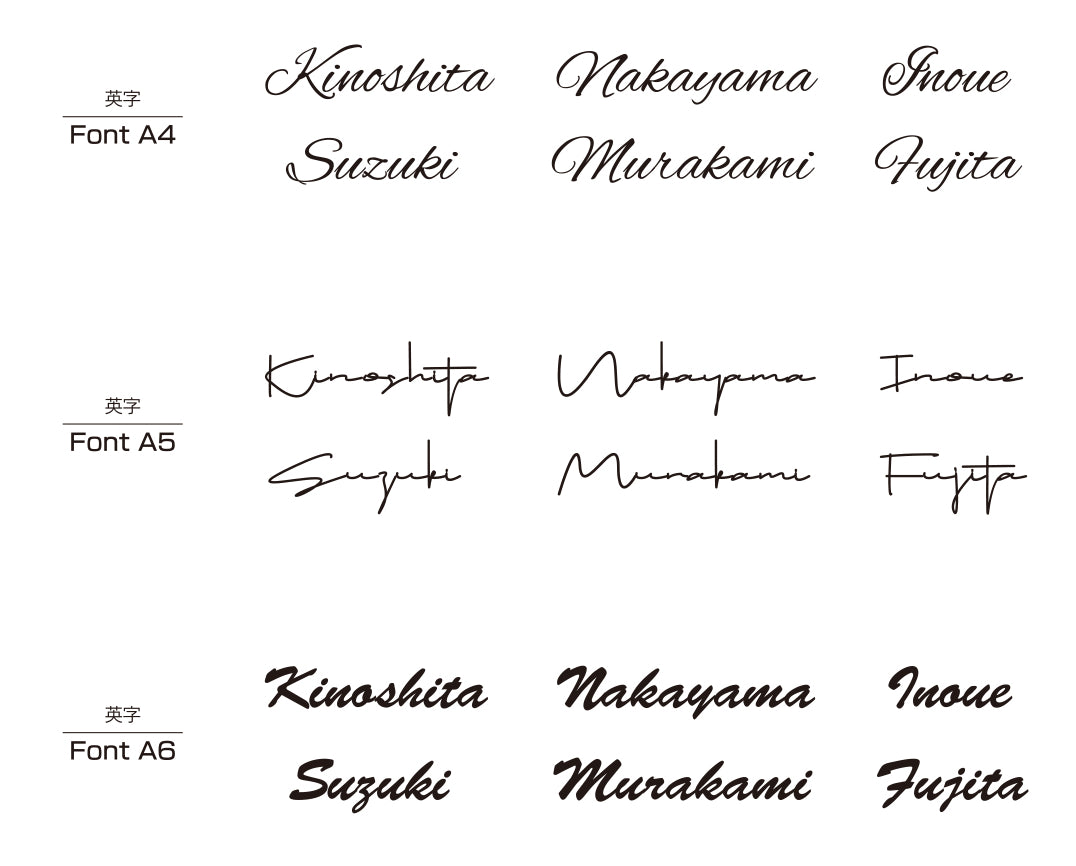 Kinoshita Nakayama Inoue
英字
Font A4
Suzuki Murakami Fujita
Kinoshita Nakayama Inoue
英字
Font A5
Suzuki Murakami Fujita
Kinoshita Nakayama Inoue
英字
Font A6
Suzuki Murakami Fujita